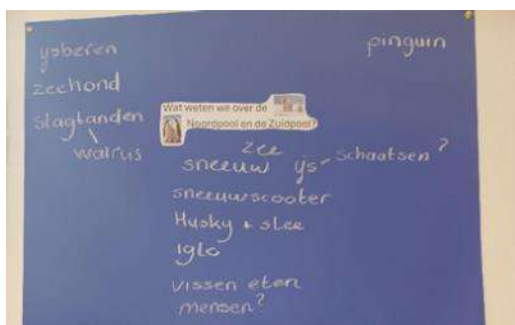 ysberen
zeehond
slagtanden
walrus
pinguin
Wat weten we over de
Noordpool en de Zuidpool?
zee
sneeuw ijs - schaatsen?
sneeuwscooter
Husky + slee
iglo
vissen eten
mensen?